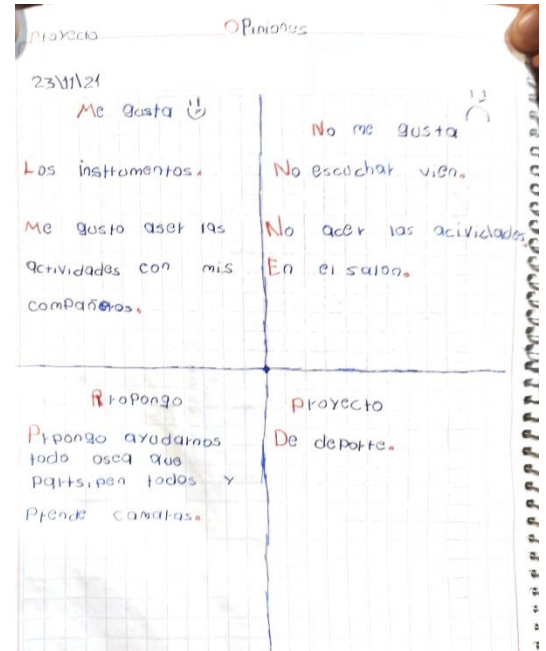 Proyecto
Opiniones
23\11\21
Me gusta
Los instrumentos.
Me gusto aser las
actividades con mis
compañeros.
No me gusta
No escuchar vien.
No acer las acividades
En el salon.
Propongo
Prpongo ayudarnos
todo osea que
partsipen todos y
Prende camaras.
Proyecto
De deporte.